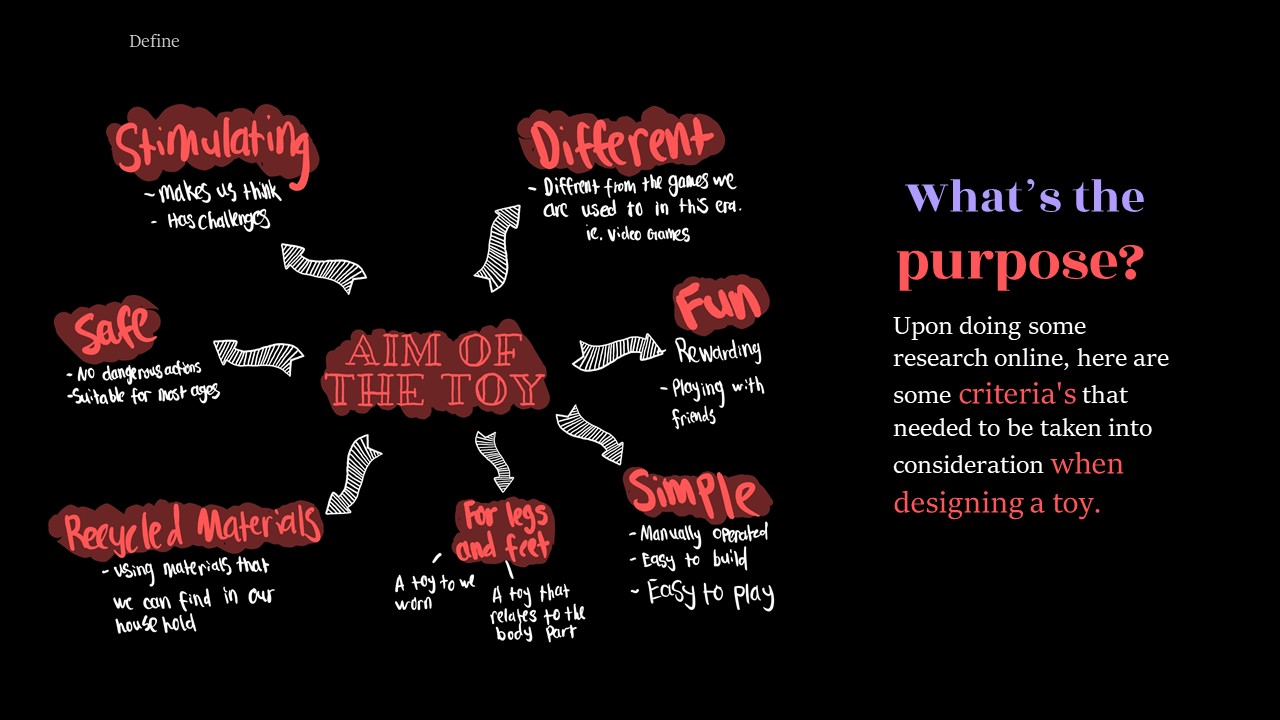 Define
Stimulating
- Makes us think
- Has Challenges
Different
- Diffrent from the games we
are used to in this era.
ie. Video Games
Safe
- No dangerous actions
- Suitable for most ages
AIM OF
THE TOY
Fun
Rewarding
- Playing with
friends
Recycled Materials
- using materials that
we can find in our
house hold
For legs
and feet
A toy to we
worn
A toy that
relates to the
body part
Simple
- Manually operated
- Easy to build
- Easy to play
What's the
purpose?
Upon doing some
research online, here are
some criteria's that
needed to be taken into
consideration when
designing a toy.